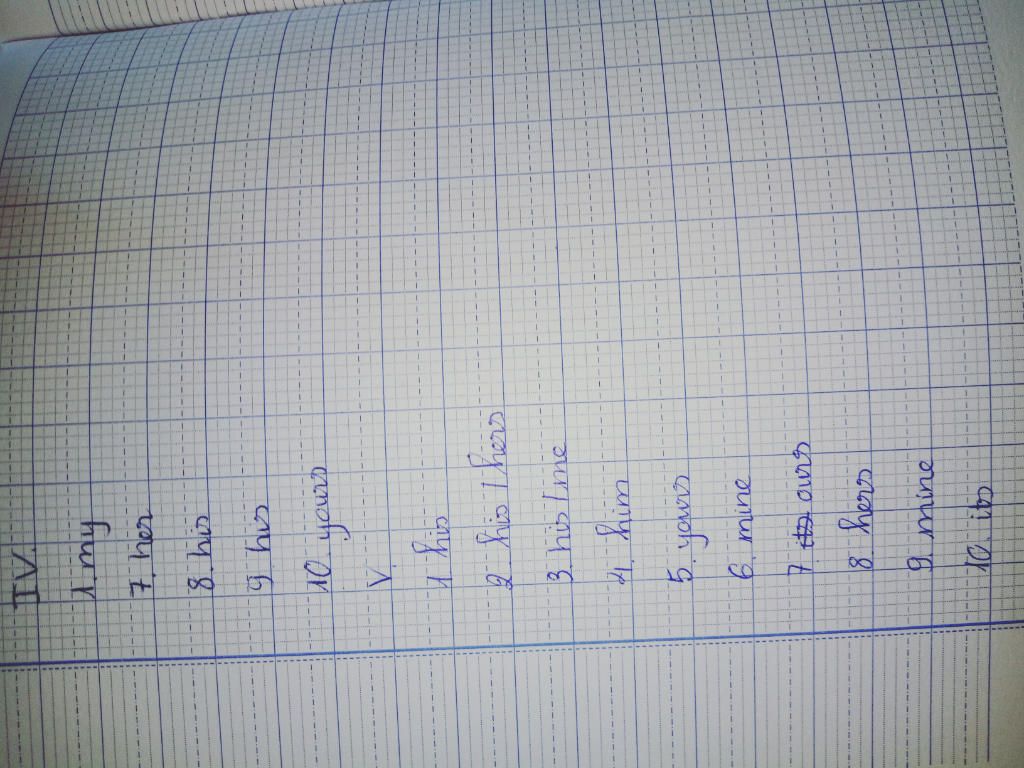 IV.
1. my
7. her
8. his
9. his
10. yours
V.
1. his
2. his / hers
3. his / me
4. him
5. yours
6. mine
7. ours
8. hers
9. mine
10. its